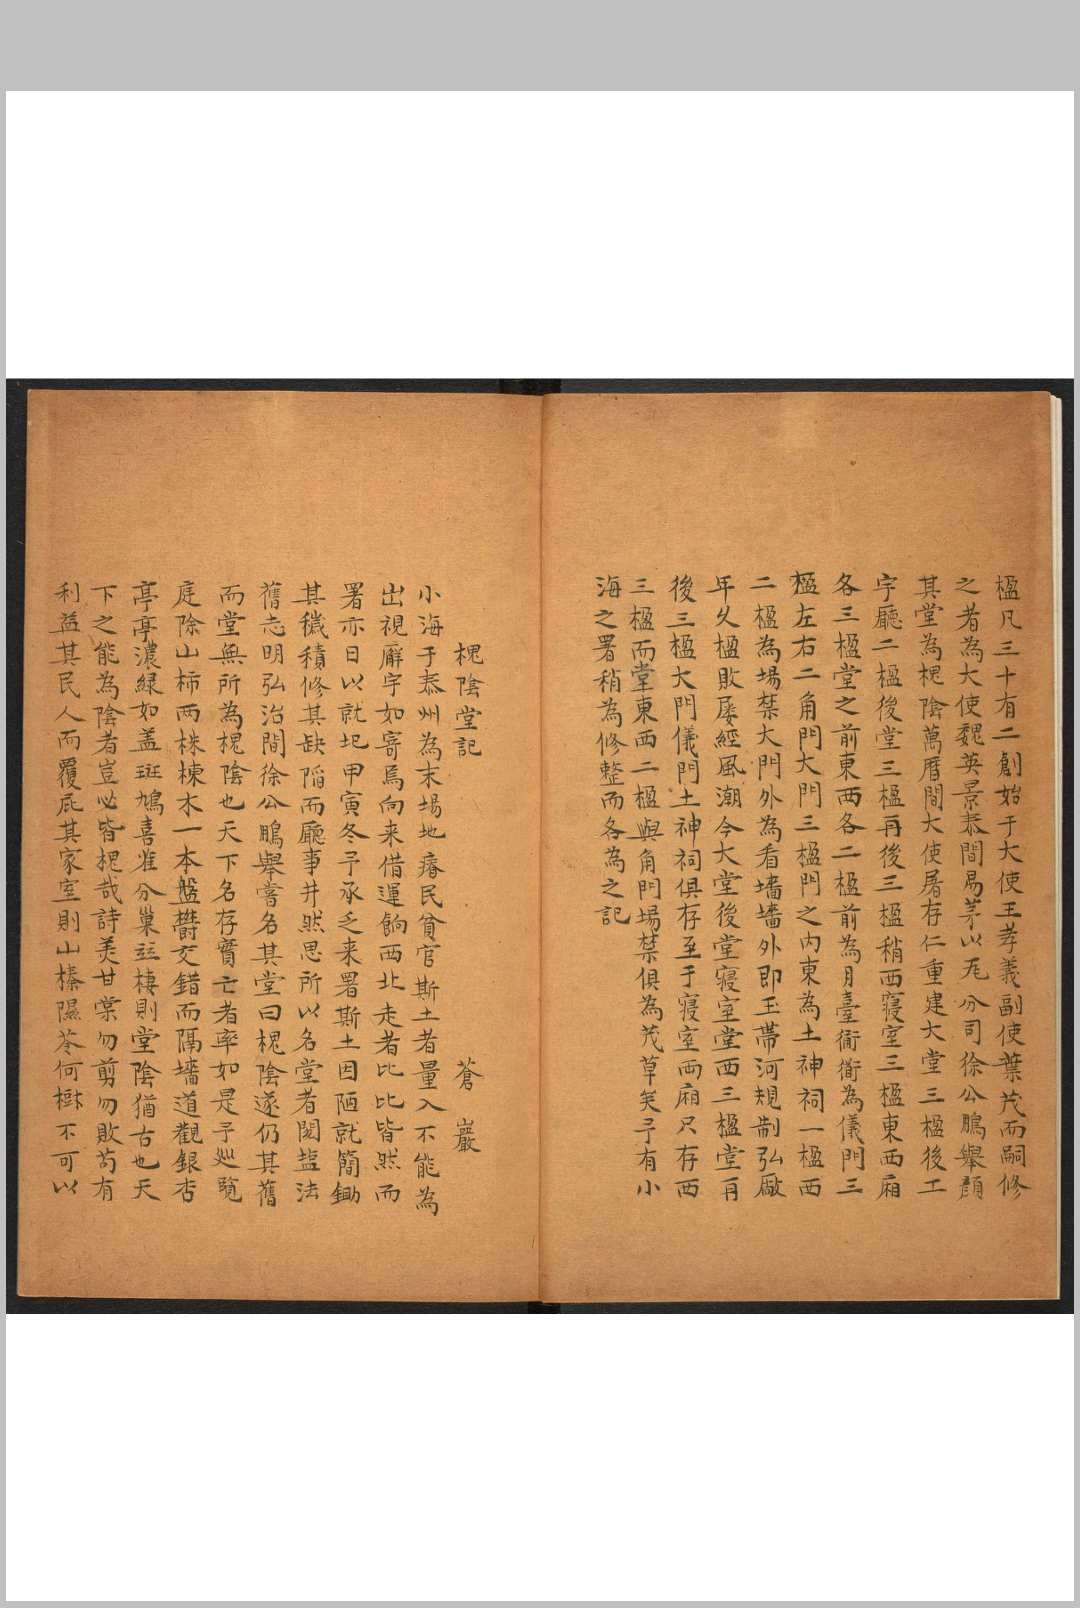 楹凡三十有二創始于大使王孝義副使葉茂而嗣修
之者為大使魏英景泰間易茅以瓦分司徐公鵬舉顏
其堂為槐陰萬曆間大使屠存仁重建大堂三楹後工
字廳二楹後堂三楹再後三楹稍西寢室三楹東西廂
各三楹堂之前東西各二楹前為月臺衜衜為儀門三
楹左右二角門大門三楹門之内東為土神祠一楹西
二楹為場禁大門外為看墻墻外即玉帶河規制弘廠
年久楹敗屡經風潮今大堂後堂寢室堂西三楹堂再
後三楹大門儀門土神祠俱存至于寢室兩廂只存西
三楹而堂東西二楹與角門場禁俱為茂草矣予有小
海之署稍為修整而各為之記
槐陰堂記 蒼巖
小海于泰州為末場地瘠民貧官斯土者量入不能為
出視廨宇如寄焉向来借運餉西北走者比比皆然而
署亦日以就圮甲寅冬予承乏来署斯土因陋就簡鋤
其穢積修其缺陷而廳事井然思所以名堂者閱塩法
舊志明弘治間徐公鵬舉嘗名其堂曰槐陰遂仍其舊
而堂無所為槐陰也天下名存實亡者率如是予廵覧
庭除山柿兩株楝木一本盤欝交錯而隔墻道觀銀杏
亭亭濃緑如盖斑鳩喜雀分巢竝棲則堂陰猶古也天
下之能為陰者豈必皆槐哉詩美甘棠勿剪勿敗苟有
利益其民人而覆庇其家室則山榛隰苓何樹不可以